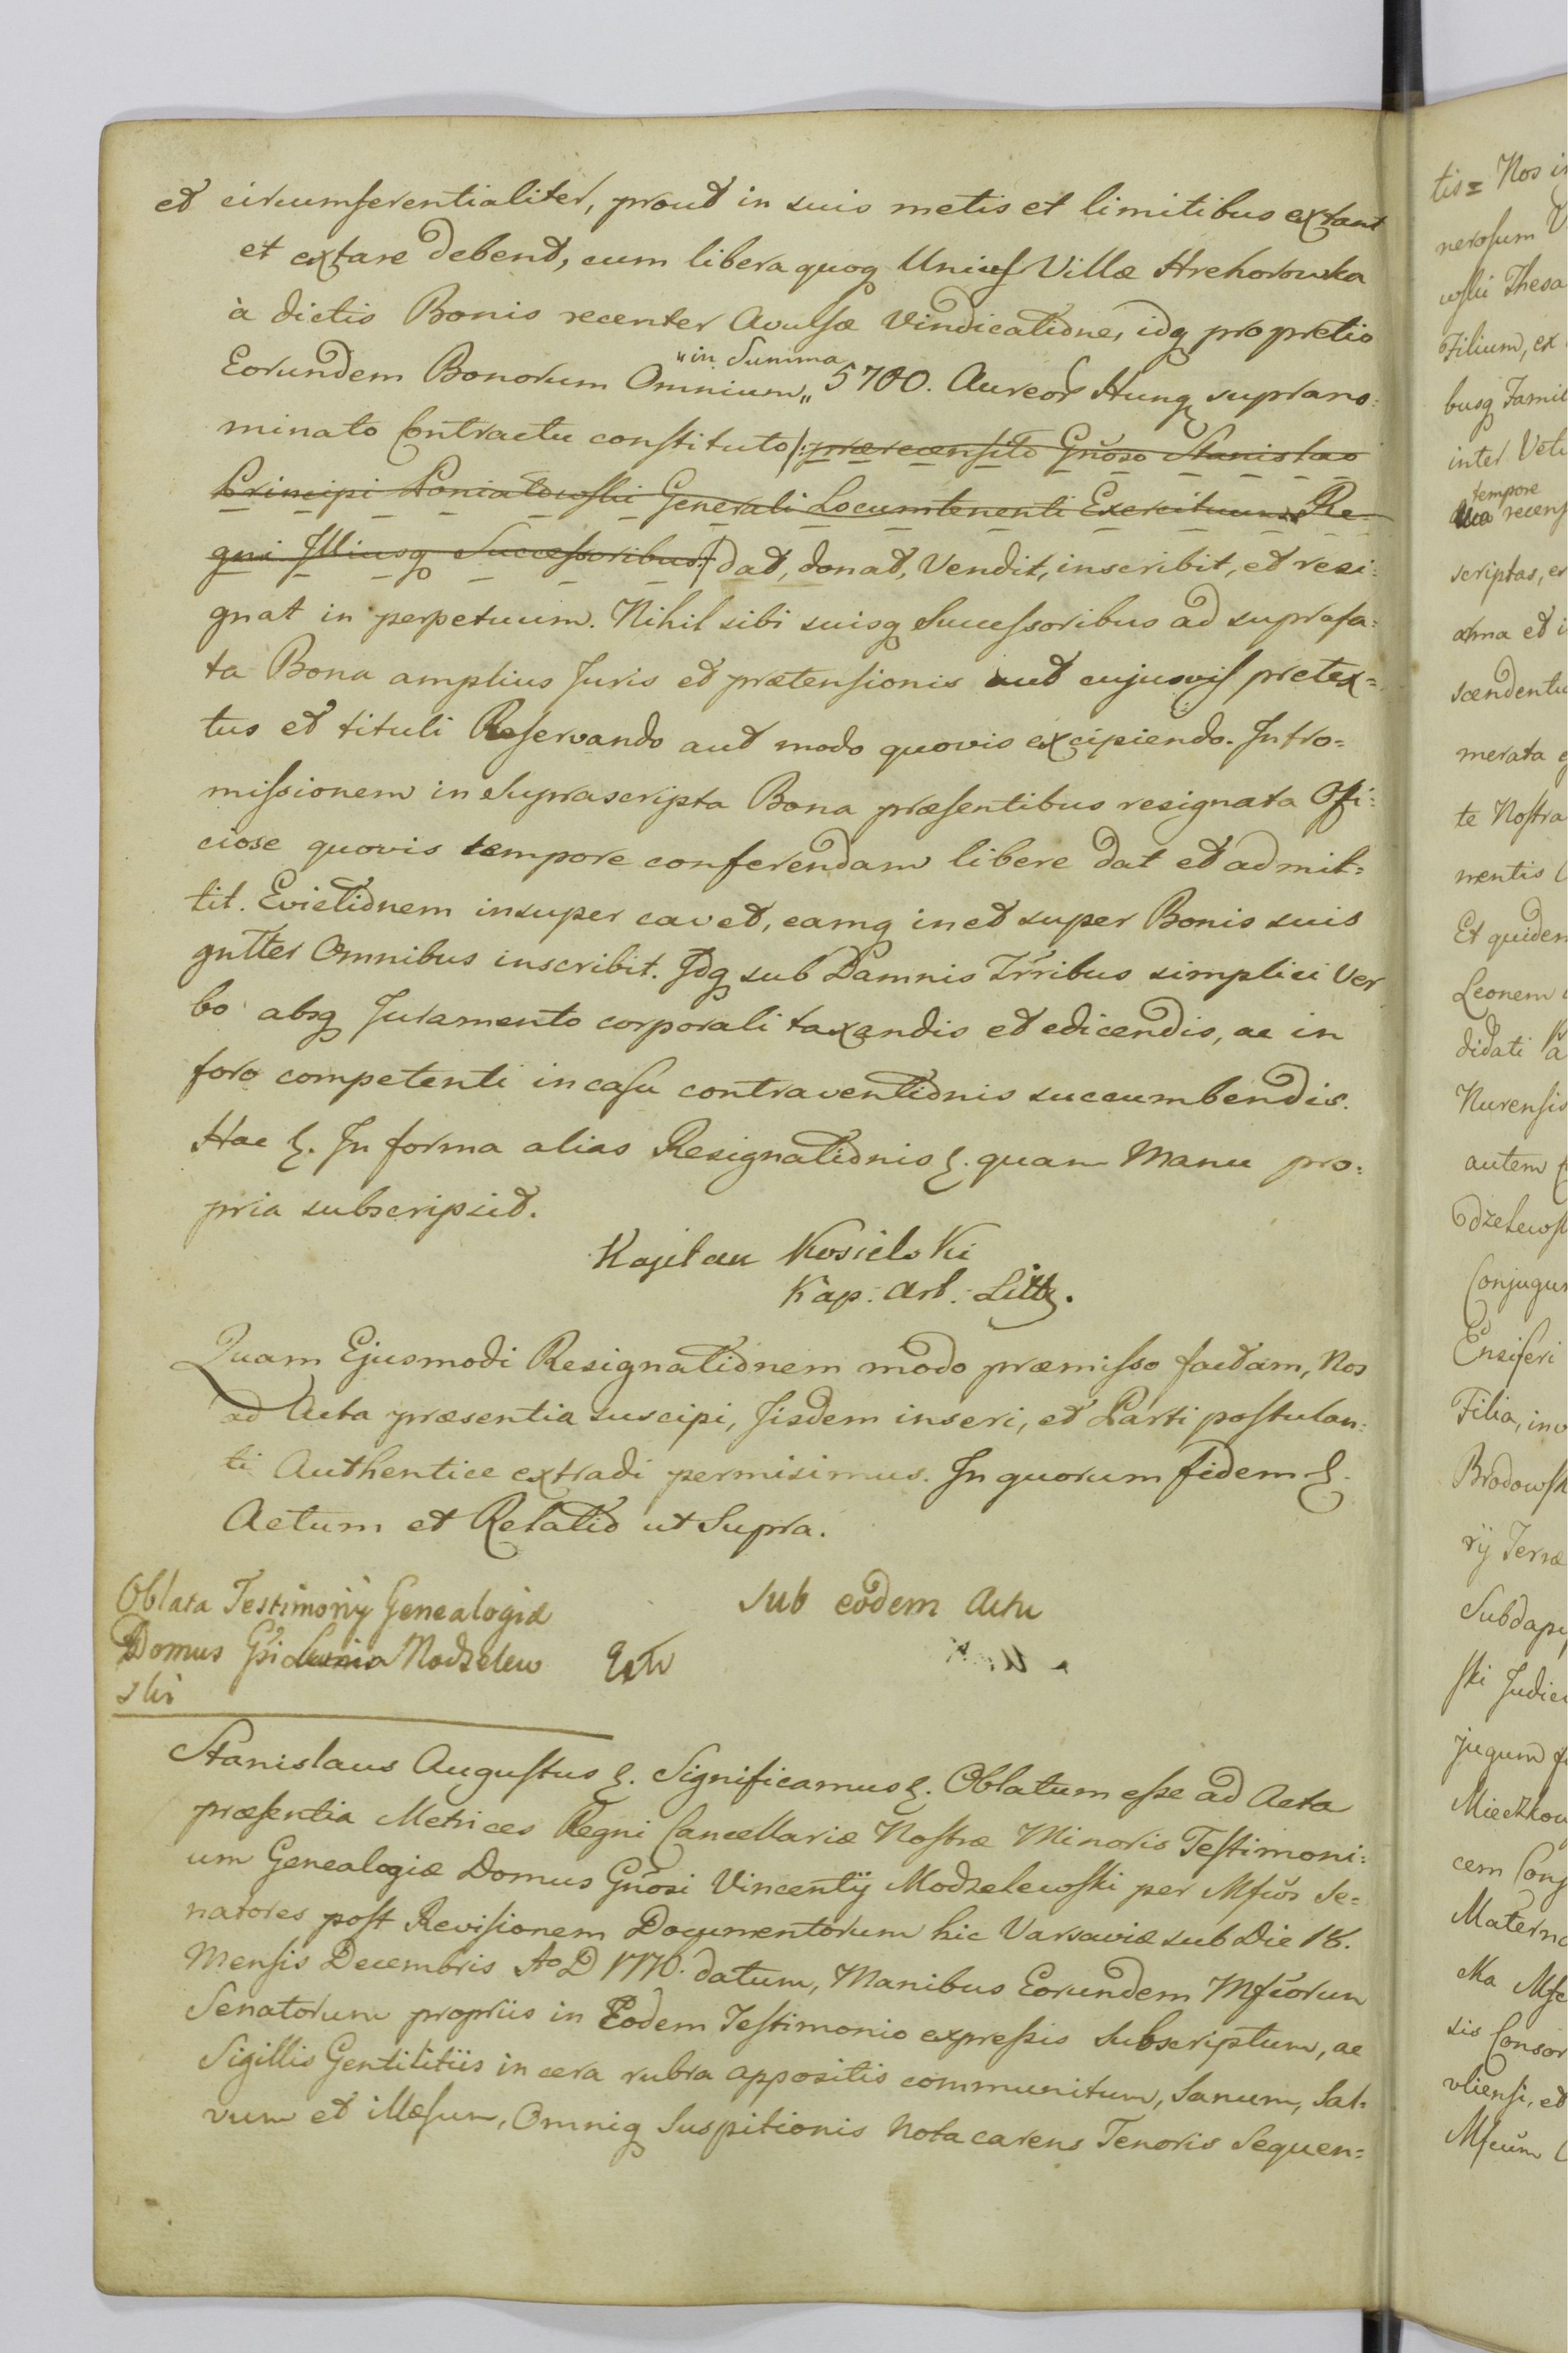 et circumferentialiter, prout in suis metis et limitibus extant
et extare debent, cum libera quoq Unius Villæ Hrehorowka
à dictis Bonis recenter Avulsæ Vindicatione, idq pro pretio
Eorundem Bonorum Omnium„ „in Summa 5700. Aureor Hung supra no:
minato Contractu constituto /: præcensito Gnoso Stanislao
Principi Poniatowski Generali Locumtenenti Exercituum Re-
gni Illiusq Successoribus :/ dat, donat, Vendit, inscribit, et resi:
gnat in perpetuum. Nihil sibi suisq Successoribus ad suprafa:
ta Bona amplius Juris et prætensionis aut cujusvis pretex=
tus et tituli Reservando aut modo quovis excipiendo. Intro=
missionem in Suprascripta Bona præsentibus resignata Offi:
ciose quovis tempore conferendam libere dat et admit:
tit. Evictionem insuper cavet, eamq in et super Bonis suis
gnlter Omnibus inscribit. Idq sub Damnis Trribus simplici Ver
bo absq Juramento corporali taxandis et edicendis, ac in
foro competenti in casu contraventionis succumbendis.
Hac &. In forma alias Resignationis &. quam Manu pro:
pria subscripsit.
Kajitan Kosielski
Kap: Art: Litt.
Quam Ejusmodi Resignationem modo præmisso factam, Nos
ad Acta præsentia suscipi, Iisdem inseri, et Parti postulan:
ti Authentice extradi permisimus. In quorum fidem &.
Actum et Relatio ut Supra.
Oblata Testimonij Genealogiæ
Domus Gsi Modzelew
ski
Sub eodem Actu
Stanislaus Augustus &. Significamus &. Oblatum esse ad Acta
præsentia Metrices Regni Cancellariæ Nostræ Minoris Testimoni:
um Genealogiæ Domus Gnosi Vincentij Modzelewski per Mfcos Se=
natores post Revisionem Documentorum hic Varsaviæ sub Die 18.
Mensis Decembris Ao D 1770. datum, Manibus Eorundem Mfcorum
Senatorum propriis in Eodem Testimonio expressis Subscriptum, ac
Sigillis Gentilitiis in cera rubra appositis communitum, Sanum, Sal:
vum et illæsum, Omniq Suspitionis Nota carens Tenoris Sequen=
tis= Nos
nerosum
Filium, ex
busq Famil
inter
tempore
scriptas,
merata
te Nostra
mentis
Et quidem
Leonem
didati
Nurensis
autem
Conjugum
Ensiferi
Filia,
Brodowsk
rij Terræ
Subdapi
ski Judic
jugum
Mieczkow
cem Conj
Materno
Mfcum